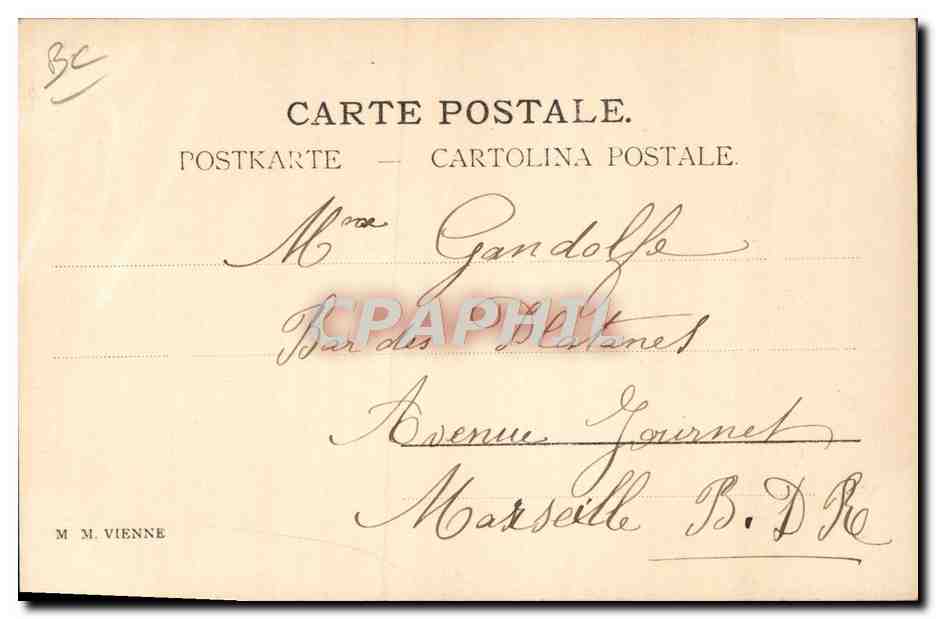 BC
CARTE POSTALE.
POSTKARTE — CARTOLINA POSTALE.
Mme Gandolfe
CPAPHIL
Bar des Platanes
Avenue Journet
Marseille B.D R
M M. VIENNE